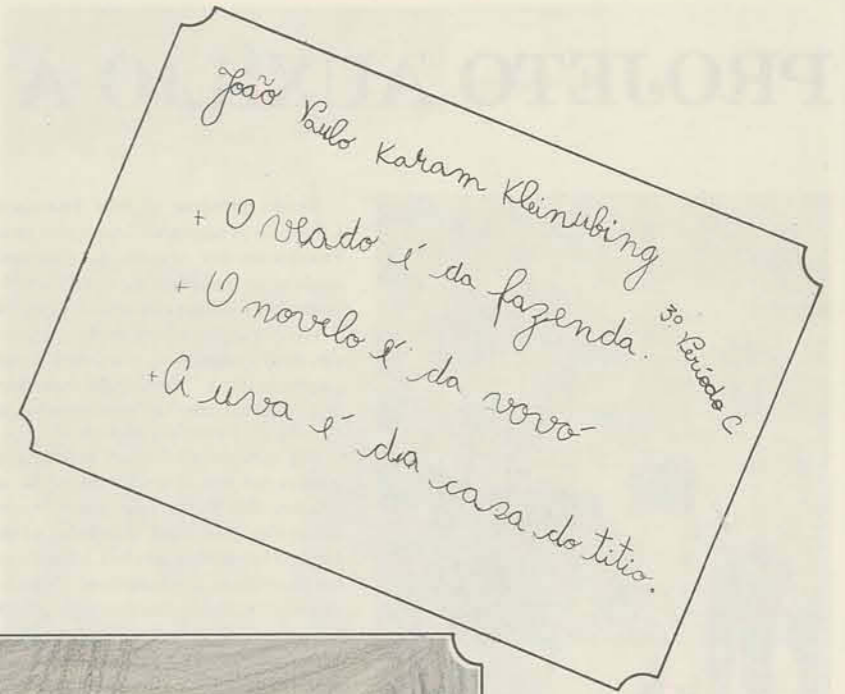 João Paulo Karam Kleinubing
3º Período C
+ O veado é da fazenda.
+ O novelo é da vovó
+ A uva é da casa do titio.